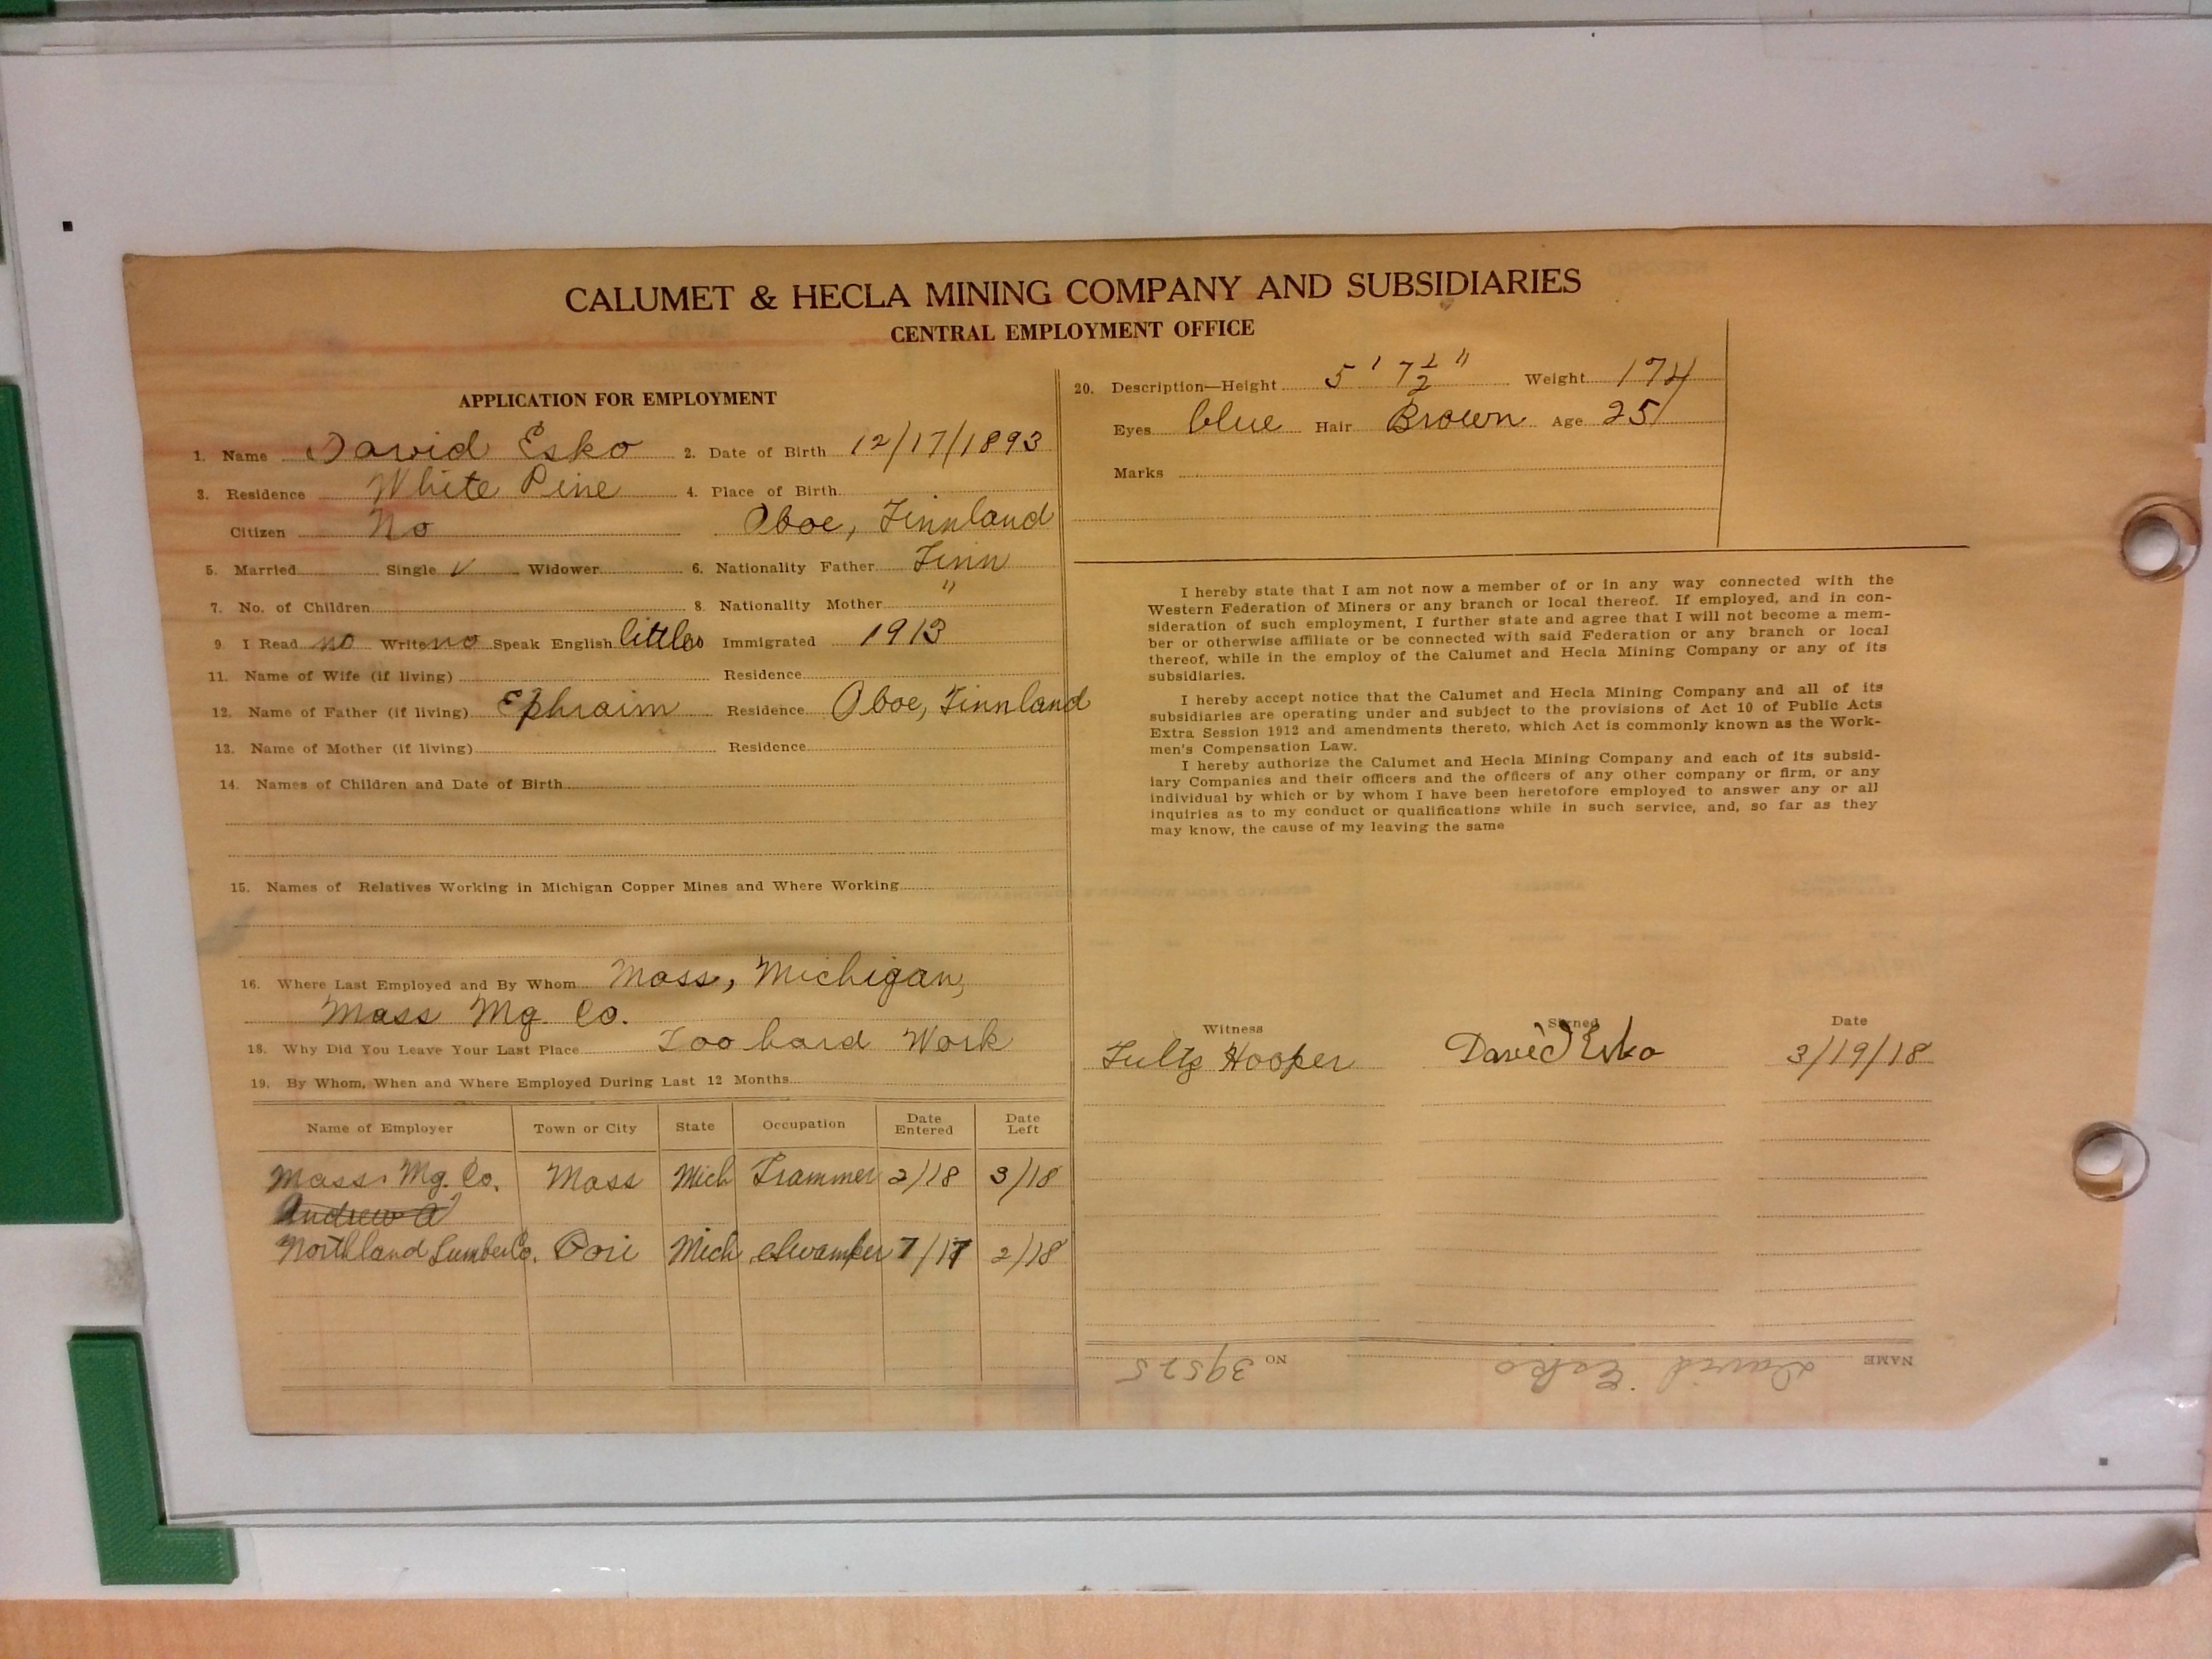 CALUMET & HECLA MINING COMPANY AND SUBSIDIARIES
CENTRAL EMPLOYMENT OFFICE
APPLICATION FOR EMPLOYMENT
1. Name David Esko 2. Date of Birth 12/17/1893
3. Residence White Pine 4. Place of Birth
Citizen No Oboe, Finnland
5. Married Single ✓ Widower 6. Nationality Father Finn
7. No. of Children 8. Nationality Mother "
9. I Read no Write no Speak English little Immigrated 1913
11. Name of Wife (if living) Residence
12. Name of Father (if living) Ephraim Residence Oboe, Finnland
13. Name of Mother (if living) Residence
14. Names of Children and Date of Birth
15. Names of Relatives Working in Michigan Copper Mines and Where Working
16. Where Last Employed and By Whom Mass, Michigan,
Mass Mg. Co.
18. Why Did You Leave Your Last Place Too hard Work
19. By Whom, When and Where Employed During Last 12 Months
Name of Employer Town or City State Occupation Date Entered Date Left
Mass Mg. Co. Mass Mich Trammer 2/18 3/18
Andrew A
Northland Lumber Co. Pori Mich Swamper 7/17 2/18
20. Description—Height 5' 7 1/2" Weight 174
Eyes blue Hair Brown Age 25
Marks
I hereby state that I am not now a member of or in any way connected with the
Western Federation of Miners or any branch or local thereof. If employed, and in con-
sideration of such employment, I further state and agree that I will not become a mem-
ber or otherwise affiliate or be connected with said Federation or any branch or local
thereof, while in the employ of the Calumet and Hecla Mining Company or any of its
subsidiaries.
I hereby accept notice that the Calumet and Hecla Mining Company and all of its
subsidiaries are operating under and subject to the provisions of Act 10 of Public Acts
Extra Session 1912 and amendments thereto, which Act is commonly known as the Work-
men's Compensation Law.
I hereby authorize the Calumet and Hecla Mining Company and each of its subsid-
iary Companies and their officers and the officers of any other company or firm, or any
individual by which or by whom I have been heretofore employed to answer any or all
inquiries as to my conduct or qualifications while in such service, and, so far as they
may know, the cause of my leaving the same
Witness Signed Date
Hooper David Esko 3/19/18
NAME David Esko NO 39525